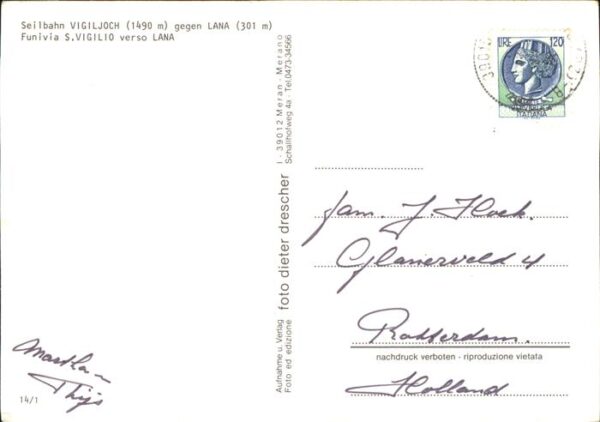 Seilbahn VIGILJOCH (1490 m) gegen LANA (301 m)
Funivia S.VIGILIO verso LANA
LIRE 120
ITALIANA
I - 39012 Meran - Merano
Schallhofweg 4a - Tel.0473-34566
foto dieter drescher
Aufnahme u. Verlag
Foto ed edizione
Fam. J. Hoek.
4
Rotterdam.
nachdruck verboten - riproduzione vietata
Holland
Martha
Thijs
14/1